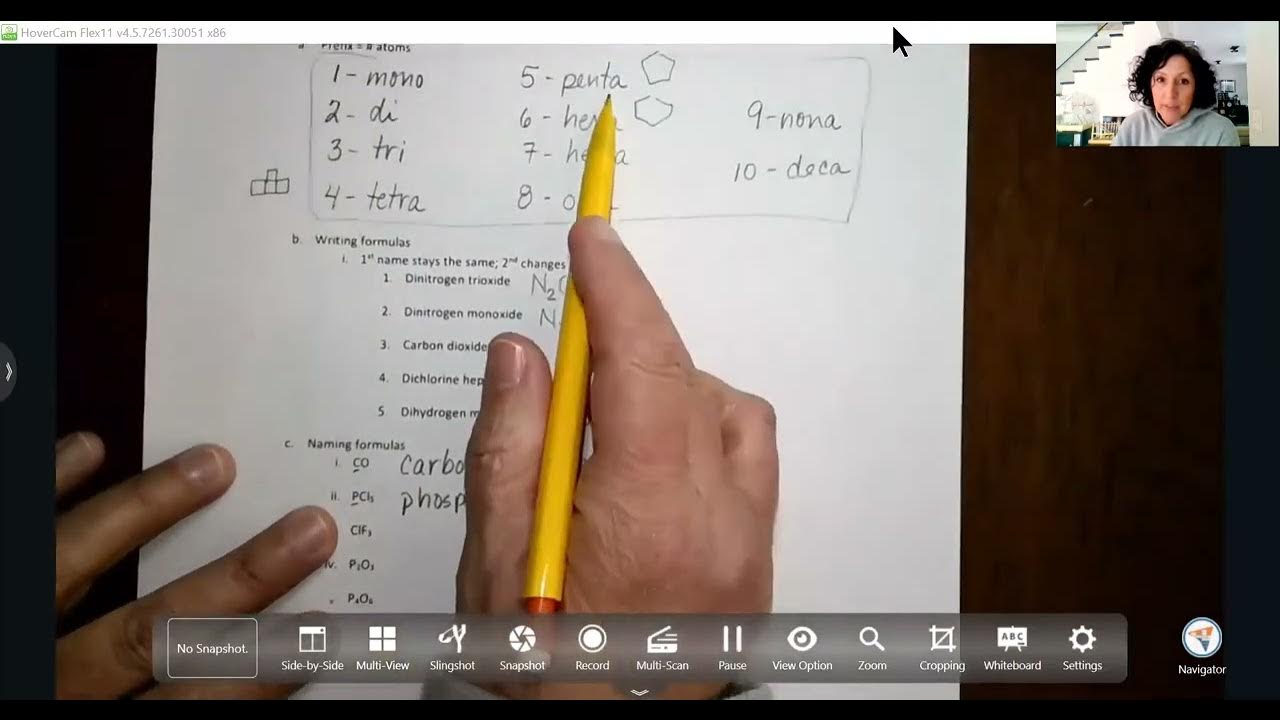 HoverCam Flex11 v4.5.7261.30051 x86
Prefix = # atoms
1 - mono 5 - penta
2 - di 6 - 9 - nona
3 - tri 7 -
10 - deca
4 - tetra 8 -
b. Writing formulas
i. 1st name stays the same; 2nd changes
1. Dinitrogen trioxide N2
2. Dinitrogen monoxide N
3. Carbon dioxide
4. Dichlorine
5. Dihydrogen
c. Naming formulas
i. CO
ii. PCl5
ClF3
iv. P2O3
v. P4O6
No Snapshot.
Side-by-Side Multi-View Slingshot Snapshot Record Multi-Scan Pause View Option Zoom Cropping ABC Whiteboard Settings Navigator